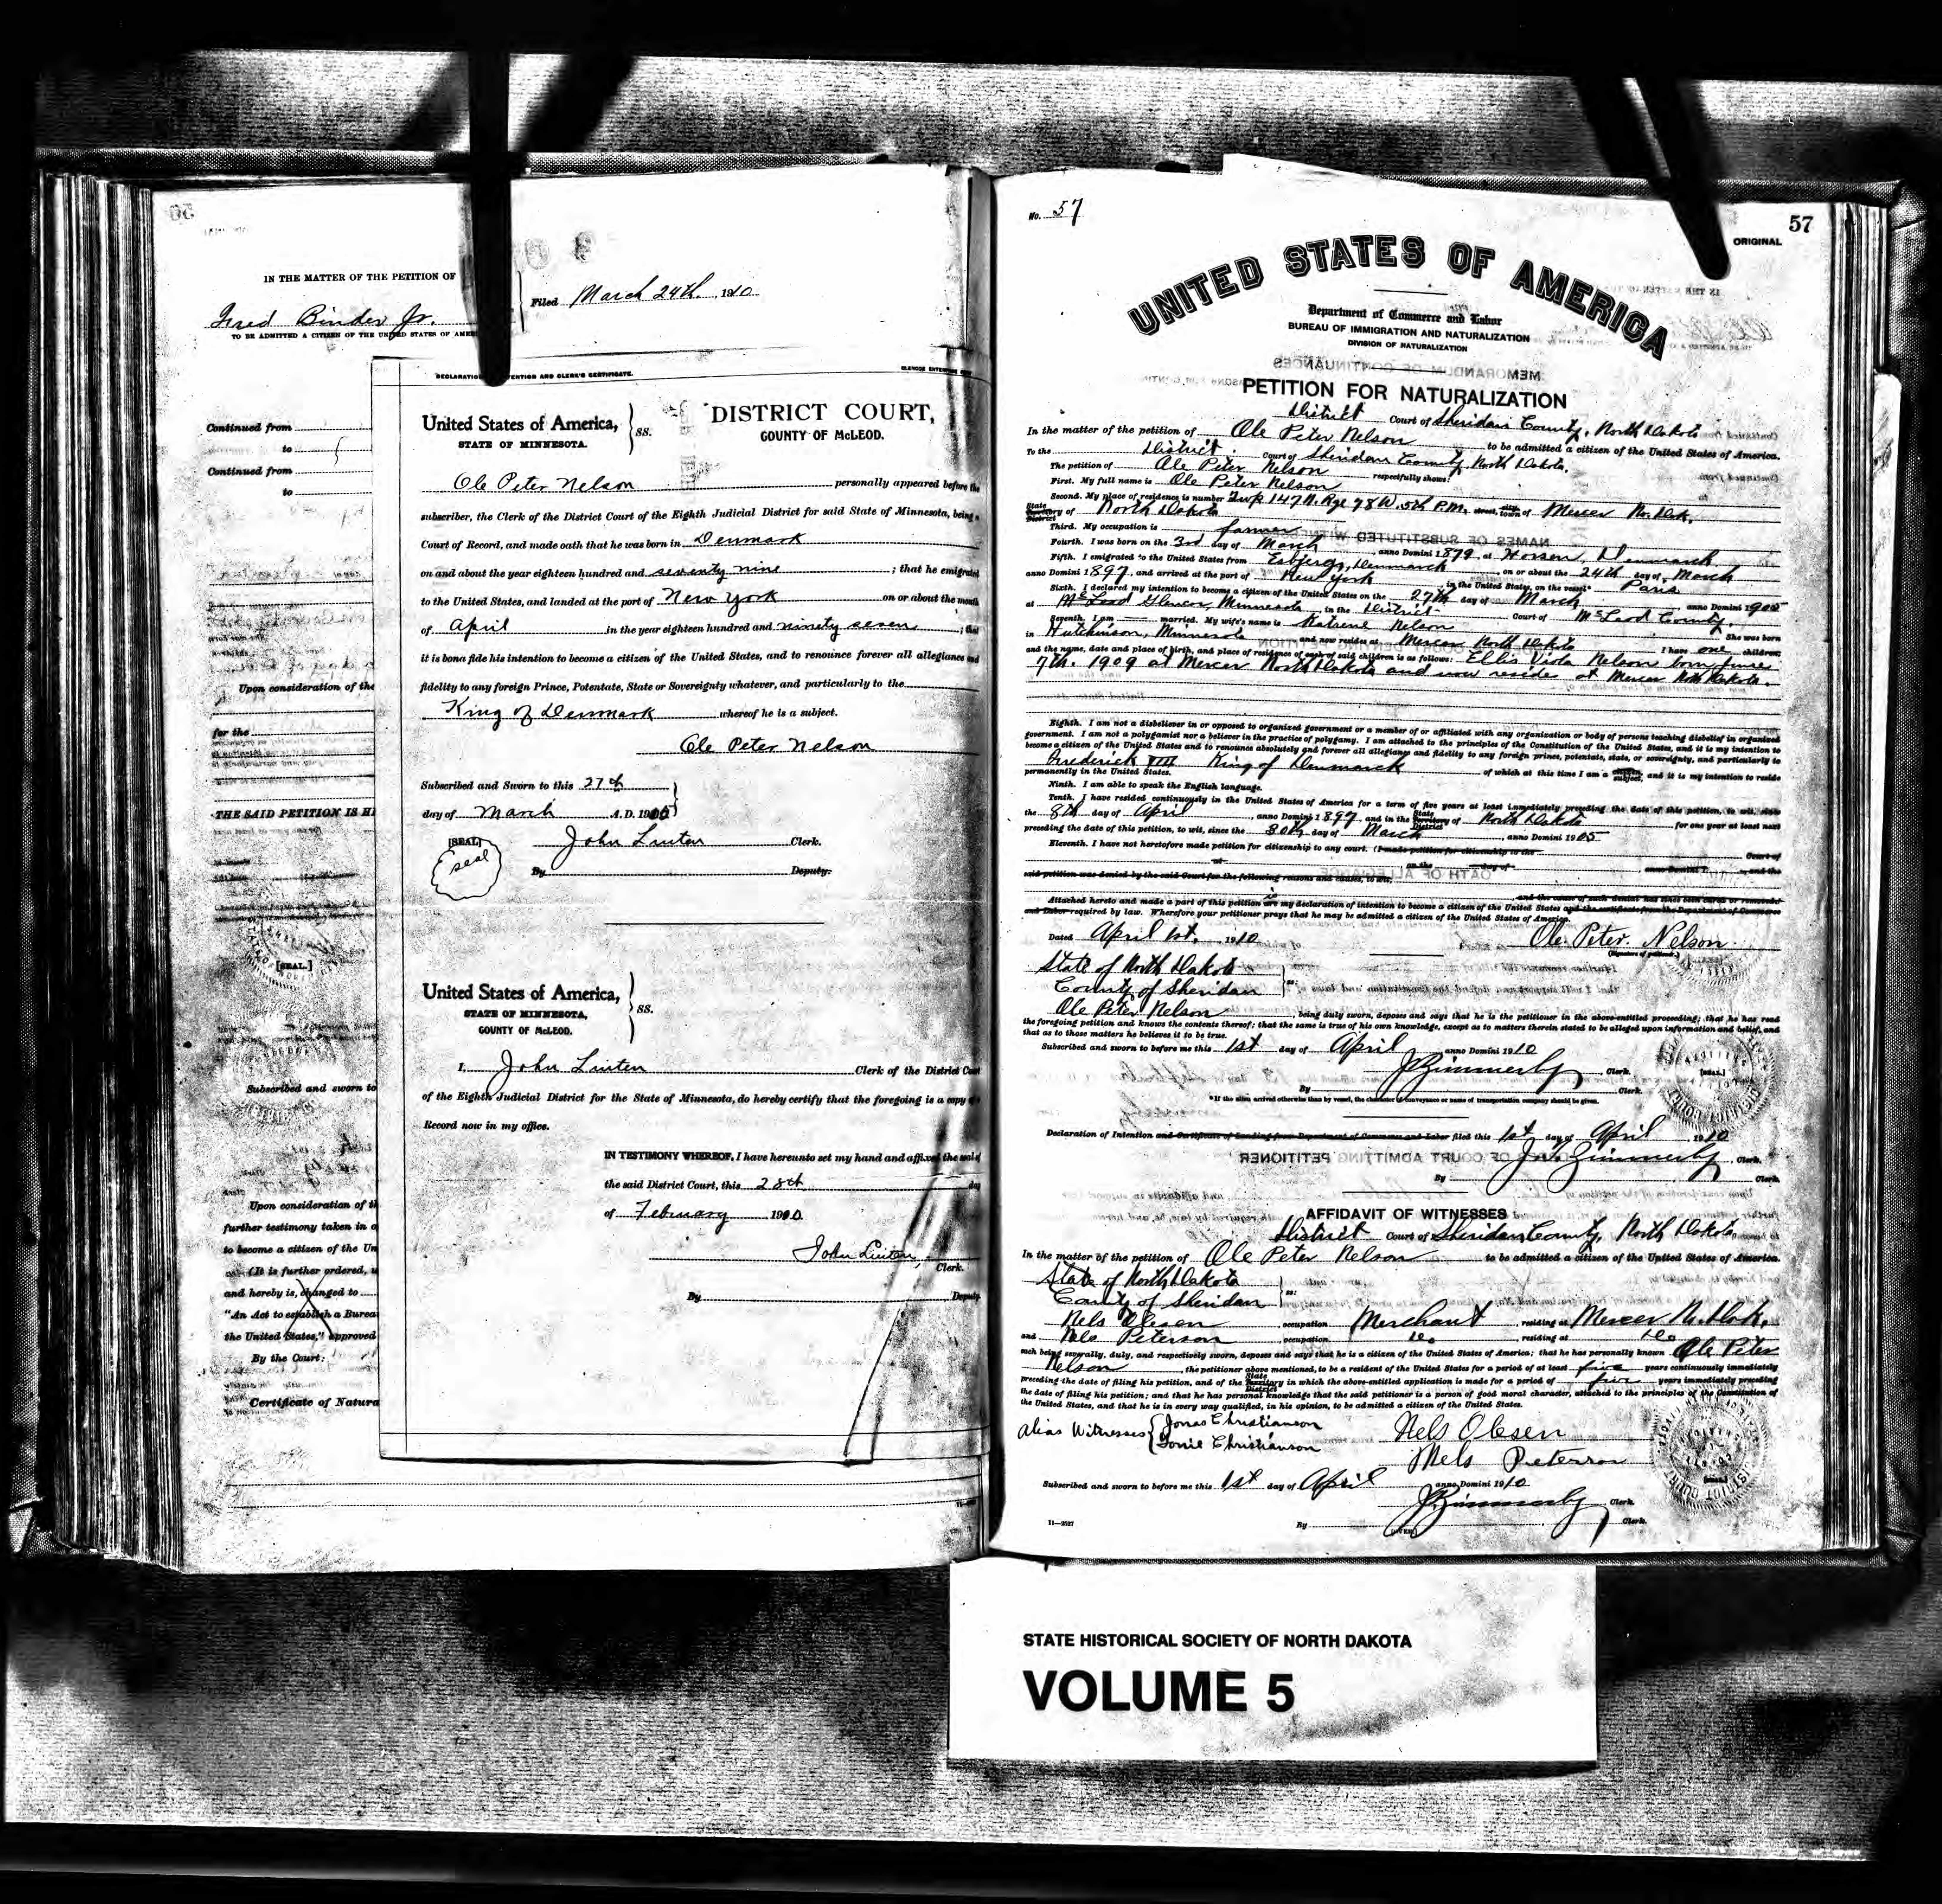 IN THE MATTER OF THE PETITION OF
Fred Binder Jr.
TO BE ADMITTED A CITIZEN OF THE UNITED STATES OF AMERI
Filed March 24th. 1910
Continued from
to
Continued from
to
Upon consideration of the
for the
THE SAID PETITION IS H
[SEAL.]
Subscribed and sworn to
Upon consideration of th
further testimony taken in o
to become a citizen of the Un
(It is further ordered, u
and hereby is, changed to
"An Act to establish a Burea
the United States," approved
By the Court:
Certificate of Natura
DECLARATION INTENTION AND CLERK'S CERTIFICATE.
United States of America,
STATE OF MINNESOTA.
SS.
DISTRICT COURT,
COUNTY OF McLEOD.
Ole Peter Nelson personally appeared before the
subscriber, the Clerk of the District Court of the Eighth Judicial District for said State of Minnesota, being a
Court of Record, and made oath that he was born in Denmark
on and about the year eighteen hundred and seventy nine ; that he emigrated
to the United States, and landed at the port of New York on or about the month
of April in the year eighteen hundred and ninety seven ; that
it is bona fide his intention to become a citizen of the United States, and to renounce forever all allegiance and
fidelity to any foreign Prince, Potentate, State or Sovereignty whatever, and particularly to the
King of Denmark whereof he is a subject.
Ole Peter Nelson
Subscribed and Sworn to this 27th
day of March A.D. 1905
[SEAL]
seal
John Linten Clerk.
By Deputy.
United States of America,
STATE OF MINNESOTA,
COUNTY OF McLEOD.
SS.
I, John Linten Clerk of the District Court
of the Eighth Judicial District for the State of Minnesota, do hereby certify that the foregoing is a copy of
Record now in my office.
IN TESTIMONY WHEREOF, I have hereunto set my hand and affixed the seal of
the said District Court, this 28th day
of February 1910
John Linten,
Clerk.
By Deputy
No. 57
57
ORIGINAL
UNITED STATES OF AMERICA
Department of Commerce and Labor
BUREAU OF IMMIGRATION AND NATURALIZATION
DIVISION OF NATURALIZATION
PETITION FOR NATURALIZATION
District Court of Sheridan County, North Dakota
In the matter of the petition of Ole Peter Nelson to be admitted a citizen of the United States of America.
To the District Court of Sheridan County, North Dakota.
The petition of Ole Peter Nelson respectfully shows:
First. My full name is Ole Peter Nelson
Second. My place of residence is number Twp 147 N. Rge 78 W. 5th P.M. street, city town of Mercer No. Dak.
State Territory District of North Dakota
Third. My occupation is farmer
Fourth. I was born on the 3rd day of March anno Domini 1879, at Horsen, Denmark
Fifth. I emigrated to the United States from Esbjerg, Denmark on or about the 24th day of March
anno Domini 1897, and arrived at the port of New York in the United States, on the vessel* Paris
Sixth. I declared my intention to become a citizen of the United States on the 27th day of March anno Domini 1905
at McLeod Glencoe, Minnesota, in the District Court of McLeod County.
Seventh. I am married. My wife's name is Katrene Nelson She was born
in Hutchinson, Minnesota and now resides at Mercer North Dakota I have one children,
and the name, date and place of birth, and place of residence of each of said children is as follows: Ellis Viola Nelson born June
7th. 1909 at Mercer North Dakota and now reside at Mercer North Dakota.
Eighth. I am not a disbeliever in or opposed to organized government or a member of or affiliated with any organization or body of persons teaching disbelief in organized
government. I am not a polygamist nor a believer in the practice of polygamy. I am attached to the principles of the Constitution of the United States, and it is my intention to
become a citizen of the United States and to renounce absolutely and forever all allegiance and fidelity to any foreign prince, potentate, state, or sovereignty, and particularly to
Frederick VIII King of Denmark of which at this time I am a citizen subject, and it is my intention to reside
permanently in the United States.
Ninth. I am able to speak the English language.
Tenth. I have resided continuously in the United States of America for a term of five years at least immediately preceding the date of this petition, to wit, since
the 8th day of April, anno Domini 1897, and in the State Territory District of North Dakota for one year at least next
preceding the date of this petition, to wit, since the 30th day of March, anno Domini 1905
Eleventh. I have not heretofore made petition for citizenship to any court. (I made petition for citizenship to the Court of
at on the day of, anno Domini 1, and the
said petition was denied by the said Court for the following reasons and causes, to wit,
and the cause of such denial has since been cured or removed.
Attached hereto and made a part of this petition are is my declaration of intention to become a citizen of the United States and the certificate from the Department of Commerce
and Labor required by law. Wherefore your petitioner prays that he may be admitted a citizen of the United States of America.
Dated April 1st, 1910
Ole Peter Nelson
(Signature of petitioner.)
State of North Dakota
County of Sheridan
ss:
Ole Peter Nelson, being duly sworn, deposes and says that he is the petitioner in the above-entitled proceeding; that he has read
the foregoing petition and knows the contents thereof; that the same is true of his own knowledge, except as to matters therein stated to be alleged upon information and belief, and
that as to those matters he believes it to be true.
Subscribed and sworn to before me this 1st day of April anno Domini 1910
Clerk.
By Clerk.
[SEAL.]
*If the alien arrived otherwise than by vessel, the character of conveyance or name of transportation company should be given.
Declaration of Intention and Certificate of Landing from Department of Commerce and Labor filed this 1st day of April 1910
Clerk.
By Clerk.
AFFIDAVIT OF WITNESSES
District Court of Sheridan County, North Dakota
In the matter of the petition of Ole Peter Nelson to be admitted a citizen of the United States of America.
State of North Dakota
County of Sheridan
ss:
Nels Olesen, occupation Merchant, residing at Mercer N. Dak.
and Nels Peterson, occupation Do, residing at Do
each being severally, duly, and respectively sworn, deposes and says that he is a citizen of the United States of America; that he has personally known Ole Peter
Nelson, the petitioner above mentioned, to be a resident of the United States for a period of at least five years continuously immediately
preceding the date of filing his petition, and of the State Territory District in which the above-entitled application is made for a period of five years immediately preceding
the date of filing his petition; and that he has personal knowledge that the said petitioner is a person of good moral character, attached to the principles of the Constitution of
the United States, and that he is in every way qualified, in his opinion, to be admitted a citizen of the United States.
Alias Witnesses { Jonas Christianson
Christianson
Nels Olesen
Nels Peterson
Subscribed and sworn to before me this 1st day of April anno Domini 1910
Clerk.
By Clerk.
11—3527
STATE HISTORICAL SOCIETY OF NORTH DAKOTA
VOLUME 5